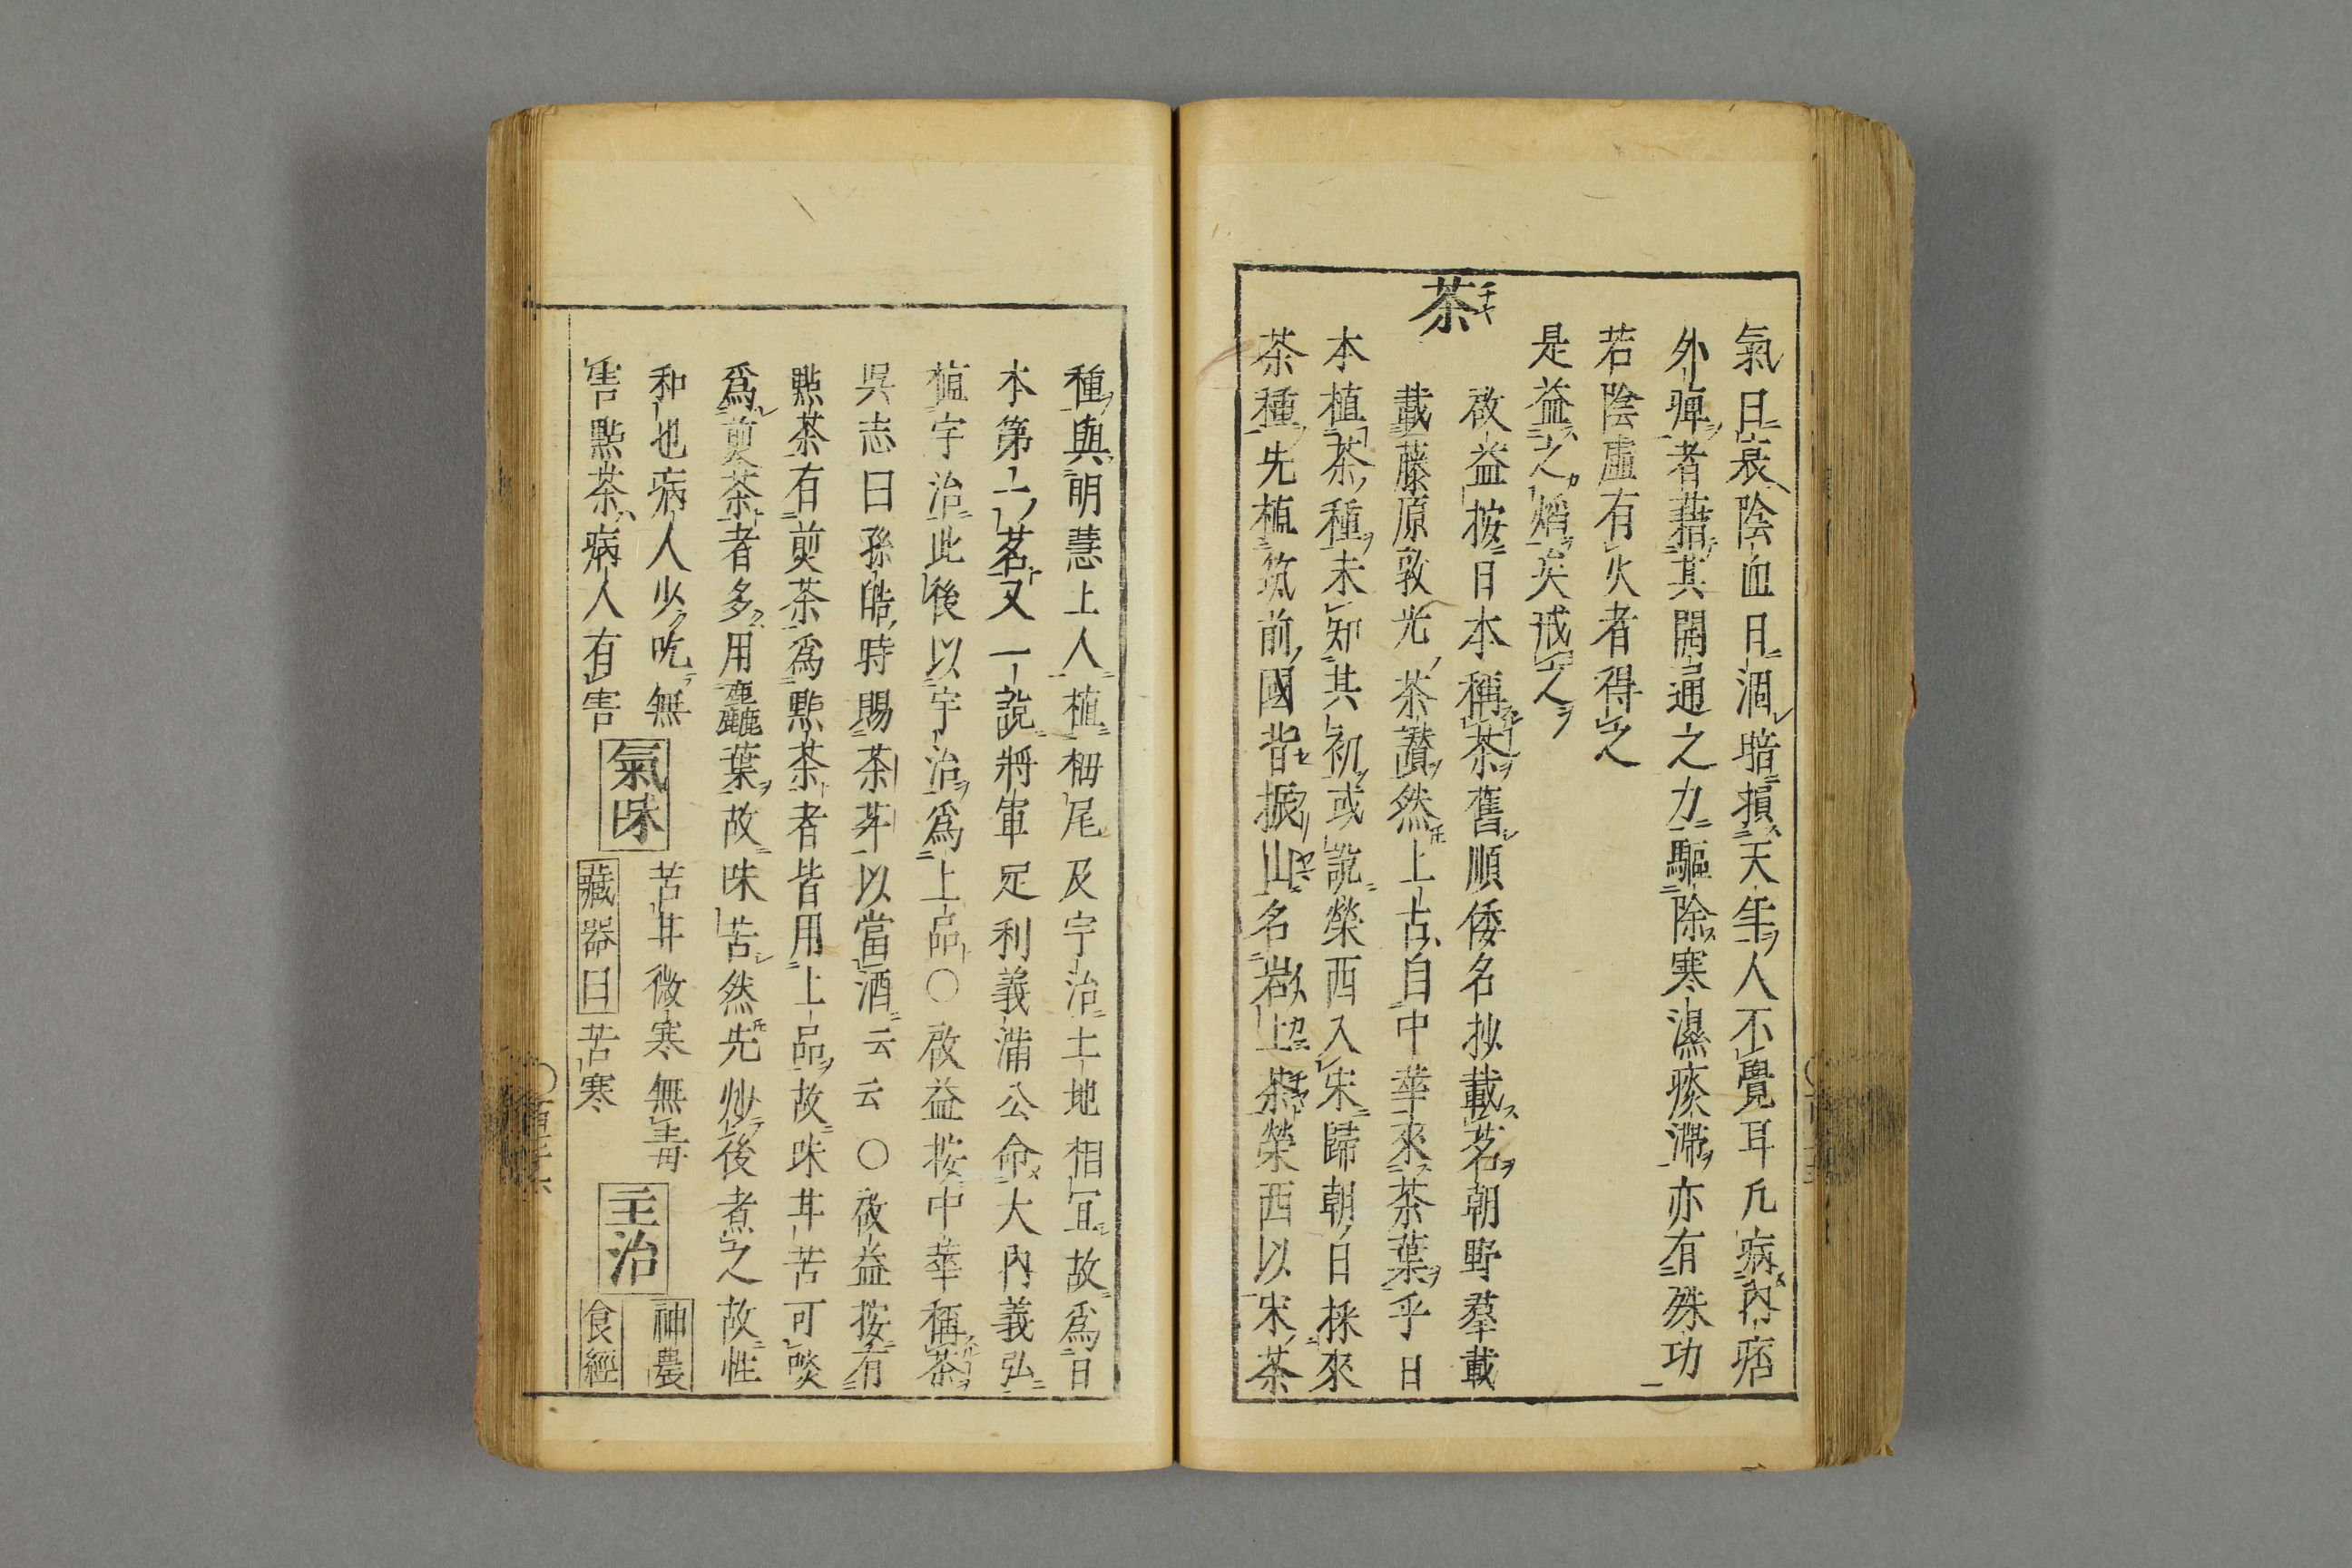 氣日衰陰血日涸暗損天年人不覺耳凢病內痞
外痺者藉其開通之力驅除寒濕痰滯亦有殊功
若陰虛有火者得之
是益之熖矣戒人
茶
啟益按日本稱茶舊順倭名抄載茗朝野羣載
載藤原敦光茶讃然上古自中華來茶葉乎日
本植茶種未知其初或說榮西入宋歸朝日採來
茶種先植筑前國背振山名岩上茶榮西以宋茶
種與明慧上人植栂尾及宇治土地相冝故爲日
本第一茗又一說將軍足利義滿公命大內義弘
植宇治此後以宇治爲上品〇啟益按中華稱茶
呉志曰孫皓時賜茶荈以當酒云云〇啟益按有
㸃茶有煎茶爲㸃茶者皆用上品故味甘苦可啖
爲煎茶者多用麤葉故味苦然先炒後煮之故性
和也病人少吃無
害㸃茶病人有害
氣味
苦甘微寒無毒
藏器曰苦寒
主治
神農
食經